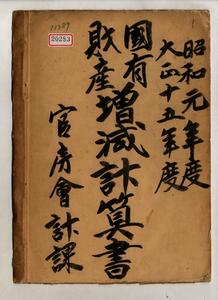 20283
昭和元年度
大正十五年度
國有
財産
増減計算書
官房會計課